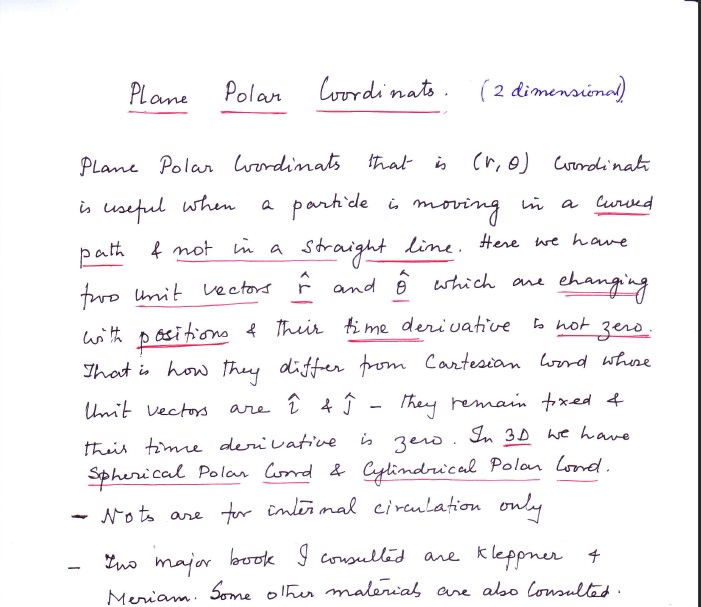 Plane Polar Coordinats. (2 dimensional)
Plane Polar Coordinats that is (r, θ) Coordinate
is useful when a particle is moving in a curved
path & not in a straight line. Here we have
two unit vectors r̂ and θ̂ which are changing
with positions & their time derivative is not zero.
That is how they differ from Cartesian Coord whose
Unit vectors are î & ĵ – they remain fixed &
their time derivative is zero. In 3D we have
Spherical Polar Coord & Cylindrical Polar Coord.
– Nots are for internal circulation only
– Two major book I consulted are Kleppner &
Meriam. Some other materials are also Consulted.